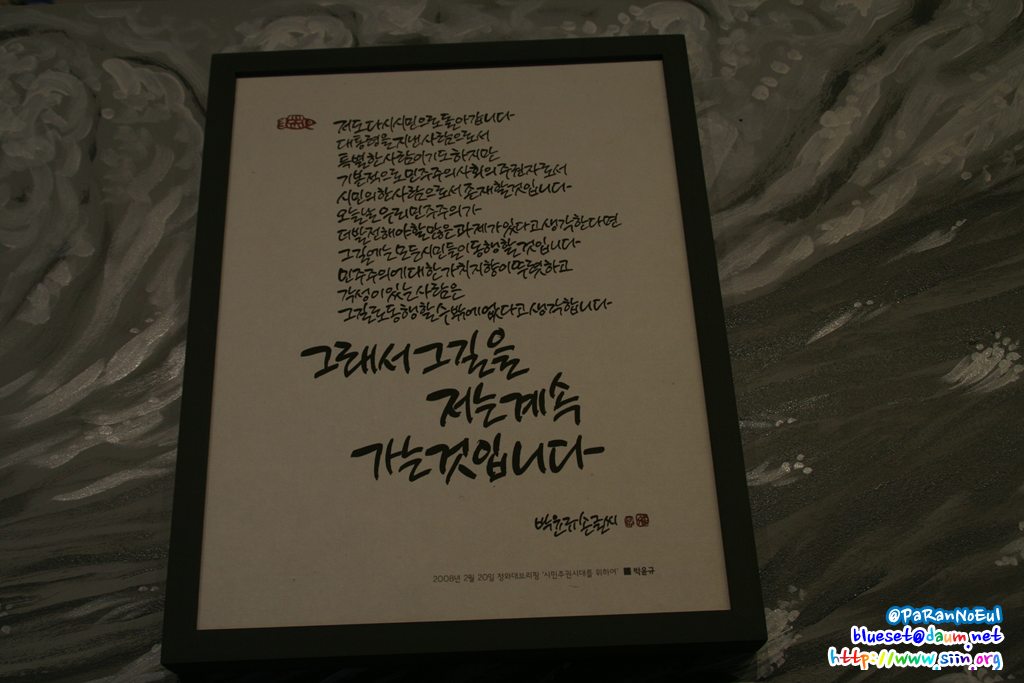 저도 다시 시민으로 돌아갑니다
대통령을 지낸 사람으로서
특별한 사람이기도 하지만
기본적으로 민주주의 사회의 주권자로서
시민의 한 사람으로서 존재할 것입니다
오늘날 우리 민주주의가
더 발전해야 할 많은 과제가 있다고 생각한다면
그 길에는 모든 시민들이 동행할 것입니다
민주주의에 대한 가치지향이 뚜렷하고
각성이 있는 사람은
그 길로 동행할 수밖에 없다고 생각합니다
그래서 그 길을
저는 계속
가는 것입니다
박윤규 손글씨
2008년 2월 20일 청와대브리핑 '시민주권시대를 위하여' ■ 박윤규
@PaRanNoEul
blueset@daum.net
http://www.siin.org